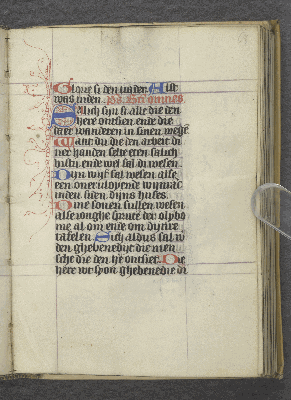 Glorie si den vader. Alst
was inden. Ps. Beati omnes
Salich syn si alle die den
here ontsien, ende die
daer wanderen in sinen wege
Want du die den arbeit di
nre handen selte eten salich
bistu ende wel sal di wesen
Dyn wyf sal wesen alse
een overvloyende wyngaert
inden siden dyns huses.
Dine sonen sullen wesen
alse ionghe spruten der olybo
me al om ende om dynre
tafelen. Sich aldus sal w
den ghebenedyt die men
sche die den here ontsiet. Die
here wt syon ghebenedie di